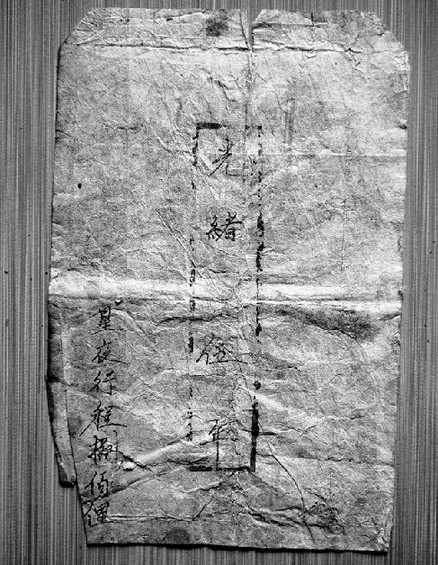 光緒伍年
星夜行程捌佰